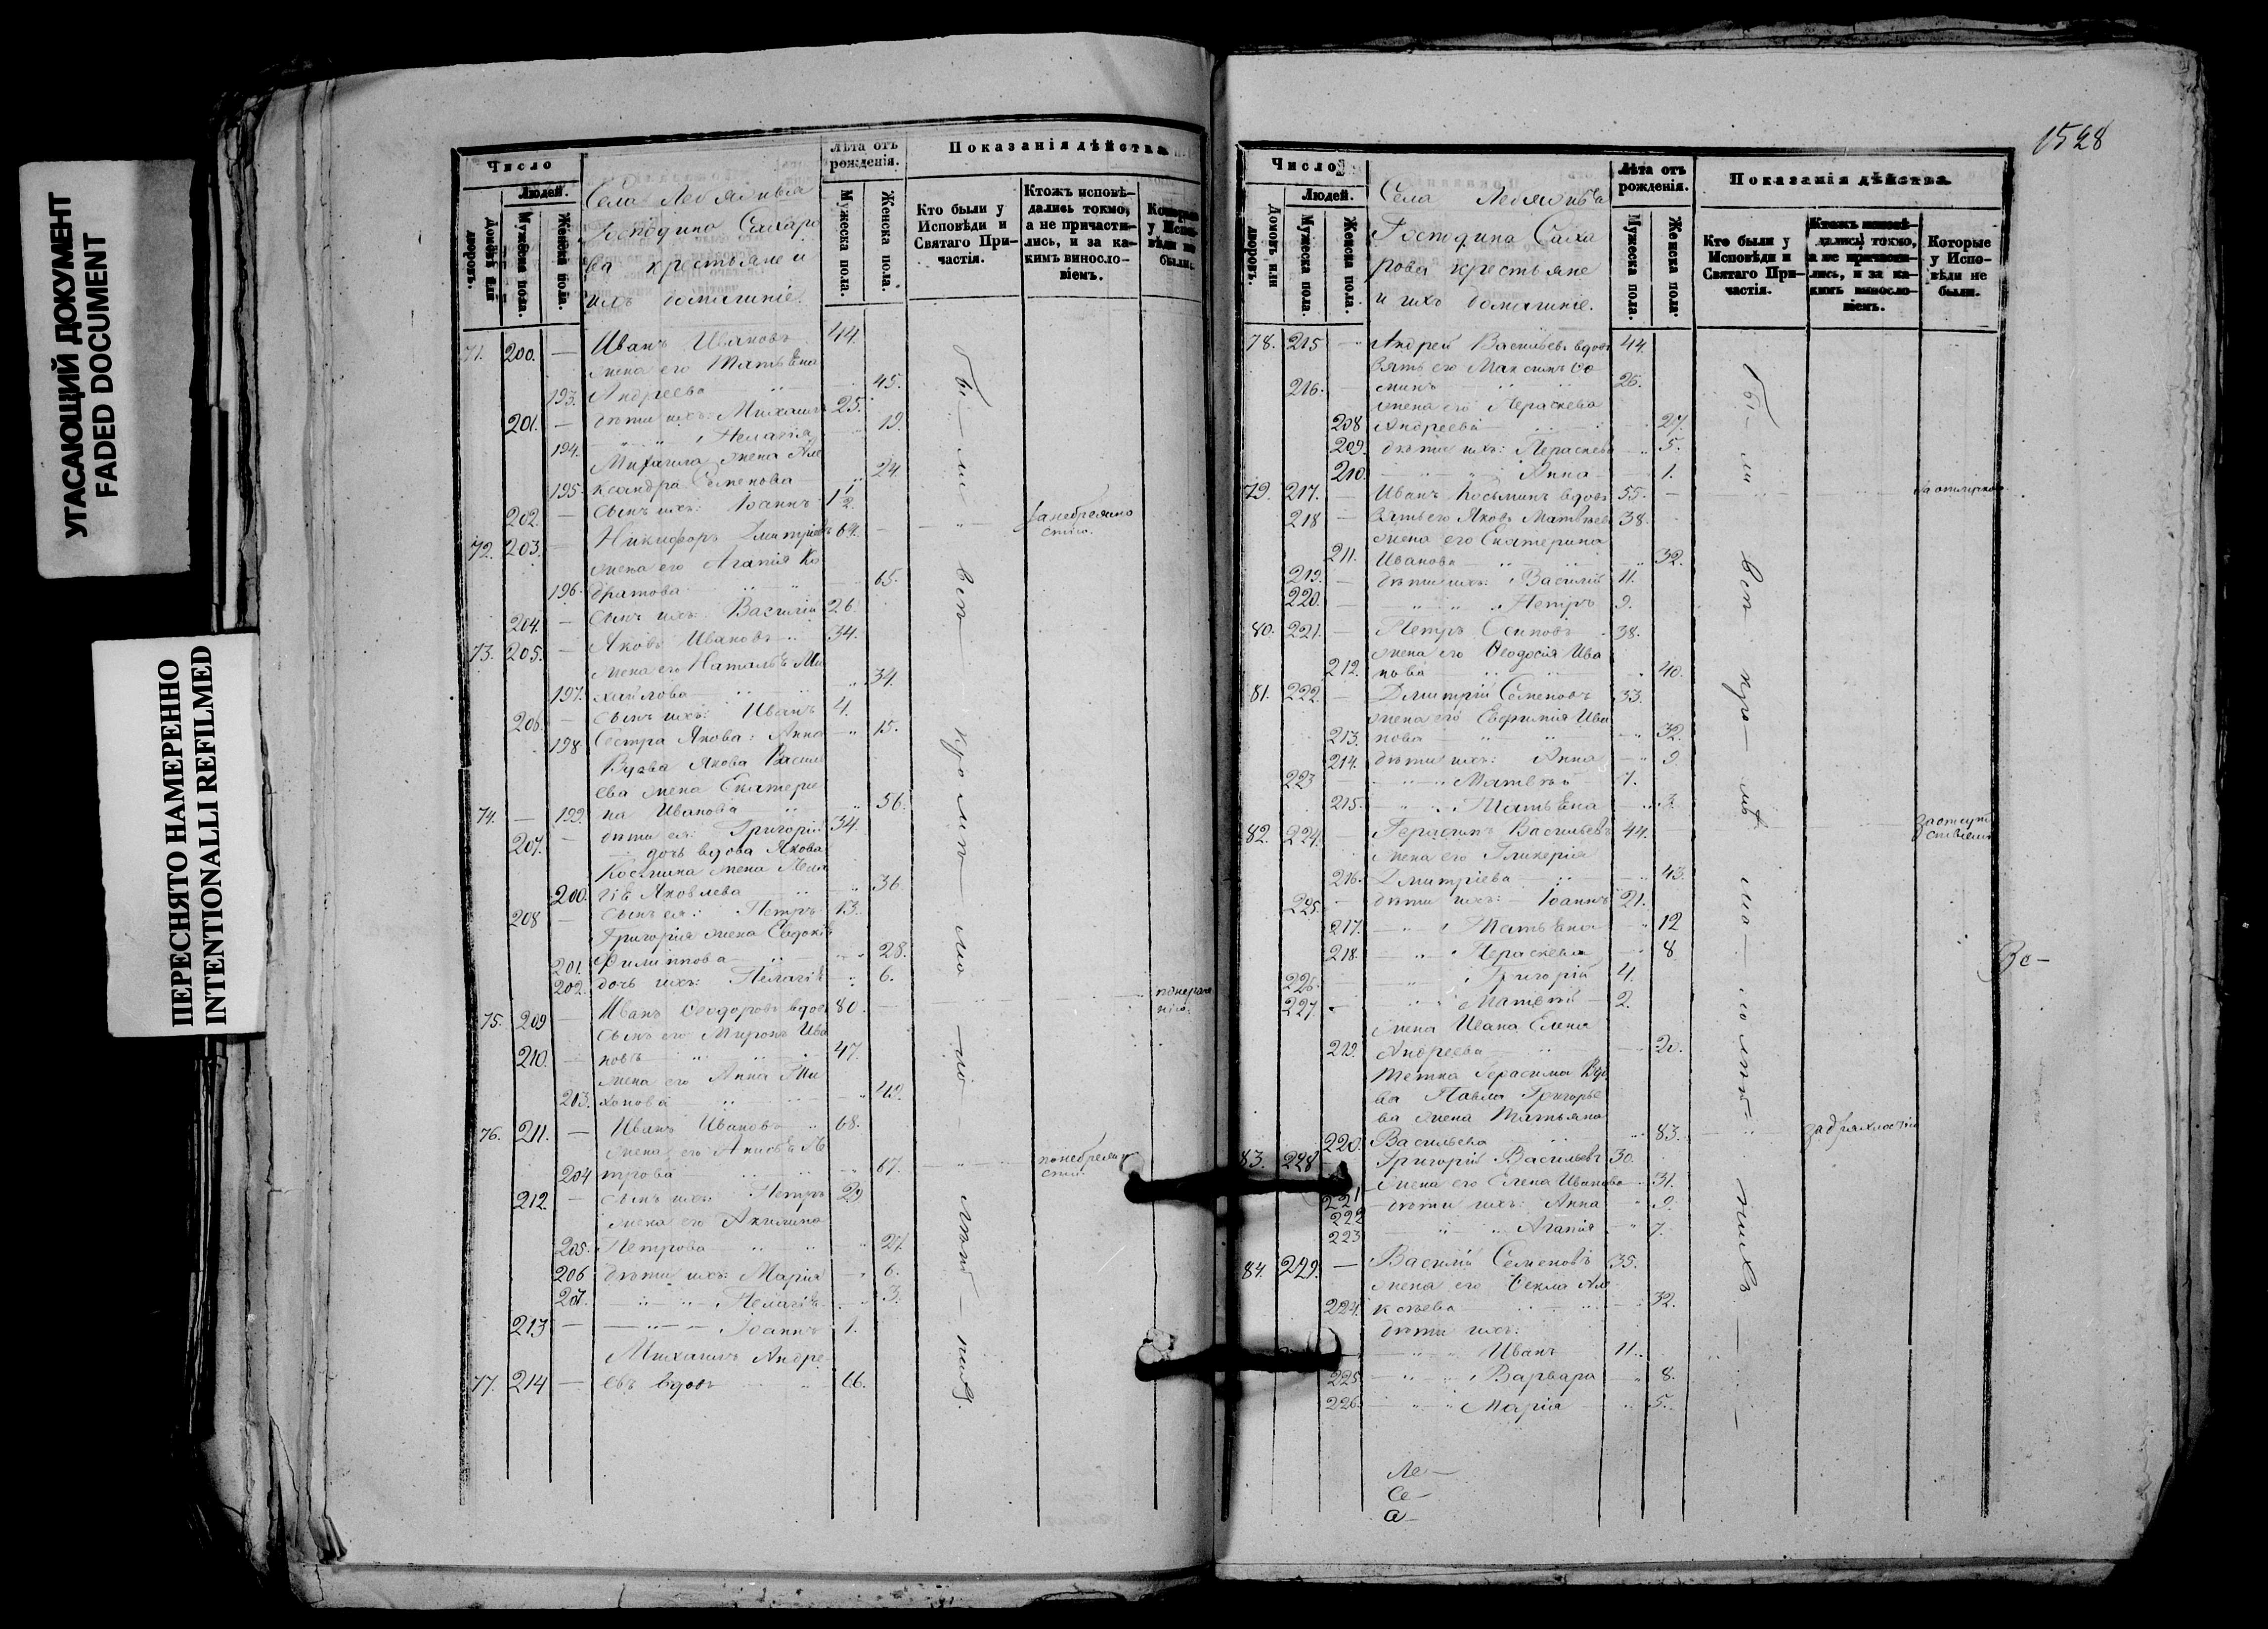 УГАСАЮЩИЙ ДОКУМЕНТ
FADED DOCUMENT
ПЕРЕСНЯТО НАМЕРЕННО
INTENTIONALLI REFILMED
Число
Людей.
Домовъ или дворовъ.
Мужеска пола.
Женска пола.
Села
Господина Сахаро
ва крестьяне и
ихъ домашніе.
Лѣта отъ рожденія.
Мужеска пола.
Женска пола.
Показанія дѣйства
Кто были у
Исповѣди и
Святаго При-
частія.
Ктожъ исповѣ-
дались токмо,
а не причасти-
лись, и за ка-
кимъ винословіемъ.
Которые
у Испо-
вѣди не
были.
71. 200. — Иванъ Ивановъ 44.
жена его Татьяна
193. Андреева 45.
201. — дѣти ихъ: Михаилъ 25.
194. Пелагія 19.
Михаила жена Але
195. ксандра Семенова 24
202. — Сынъ ихъ: Іоаннъ 1 1/2
72. 203. — Никифоръ Дмитріевъ 64.
жена его Агапія Ко
196. дратова 65.
204. — Сынъ ихъ: Василій 26.
73. 205. — Яковъ Ивановъ 34.
жена его Наталья Ми
197. хайлова 34.
206. — Сынъ ихъ: Иванъ 4.
198. Сестра Якова: Анна 15.
Вдова Якова Василь
ева жена Екатери
74. — 199. на Иванова 56.
207. — дѣти ея: Григорій 34.
дочь вдова Якова
Косьмина жена Пела
200. гія Яковлева 36
208 — Сынъ ея: Петръ 13.
Григорія жена Евдокія
201. Филиппова 28.
202. дочь ихъ: Пелагія 6.
75. 209 — Иванъ Ѳеодоровъ вдовъ 80.
Сынъ его Миронъ Ива
210. — новъ 47.
жена его Анна Ти
203. хонова 49.
76. 211. — Иванъ Ивановъ 68.
204 трова 67.
212. — Сынъ ихъ: Петръ 29
жена его Акилина
205. Петрова 27.
206 дѣти ихъ: Марія 6.
207. Пелагія 3.
213 — Іоаннъ 1.
Михаилъ Андре
77. 214 — евъ вдовъ 66.
1528
Число
Людей.
Домовъ или дворовъ.
Мужеска пола.
Женска пола.
Села
Господина Саха
рова крестьяне
и ихъ домашніе.
Лѣта отъ рожденія.
Мужеска пола.
Женска пола.
Показанія дѣйства
Кто были у
Исповѣди и
Святаго При-
частія.
Ктожъ исповѣ-
дались токмо,
а не причасти-
лись, и за ка-
кимъ виносло-
віемъ.
Которые
у Испо-
вѣди не
были.
78. 215 — Андрей Васильевъ вдовъ 44.
Зять его Максимъ
216. 26.
жена его Параскева
208 Андреева 27.
209. дѣти ихъ: Параскева 5.
210. Анна 1.
79. 217. — Иванъ Косьминъ вдовъ 55.
218 — Зять его Яковъ Матвѣевъ 38.
жена его Екатерина
211. Иванова 32.
219. — дѣти ихъ: Василій 11.
220. — Петръ 9.
80. 221. — Петръ Осиповъ 38.
жена его Ѳеодосія Ива
212. нова 40.
81. 222. — Дмитрій Семеновъ 33.
жена его Евфимія Ива
213. нова 32.
214. дѣти ихъ: Анна 9
223 Матвѣй 7.
215. Татьяна 3.
82. 224. Герасимъ Васильевъ 44. за отсут
ствіемъ
жена его Гликерія
216. Дмитріева 43.
225. — дѣти ихъ: Іоаннъ 21.
217. Татьяна 12
218. Параскева 8
226. Григорій 4.
227. Матвѣй 2.
жена Ивана Елена
219. Андреева 20.
Тетка Герасима Вдо
ва Павла Григорье
ва жена Татьяна
220. Васильева 83. за дряхлостію
83. 228 Григорій Васильевъ 30.
221 жена его Елена Иванова 31.
222 дѣти ихъ: Анна 9.
223 Агапія 7.
84. 229. — Василій Семеновъ 35.
жена его Ѳекла Але
224. ксѣева 32.
дѣти ихъ:
Иванъ 11.
225. Варвара 8.
226. Марія 5.